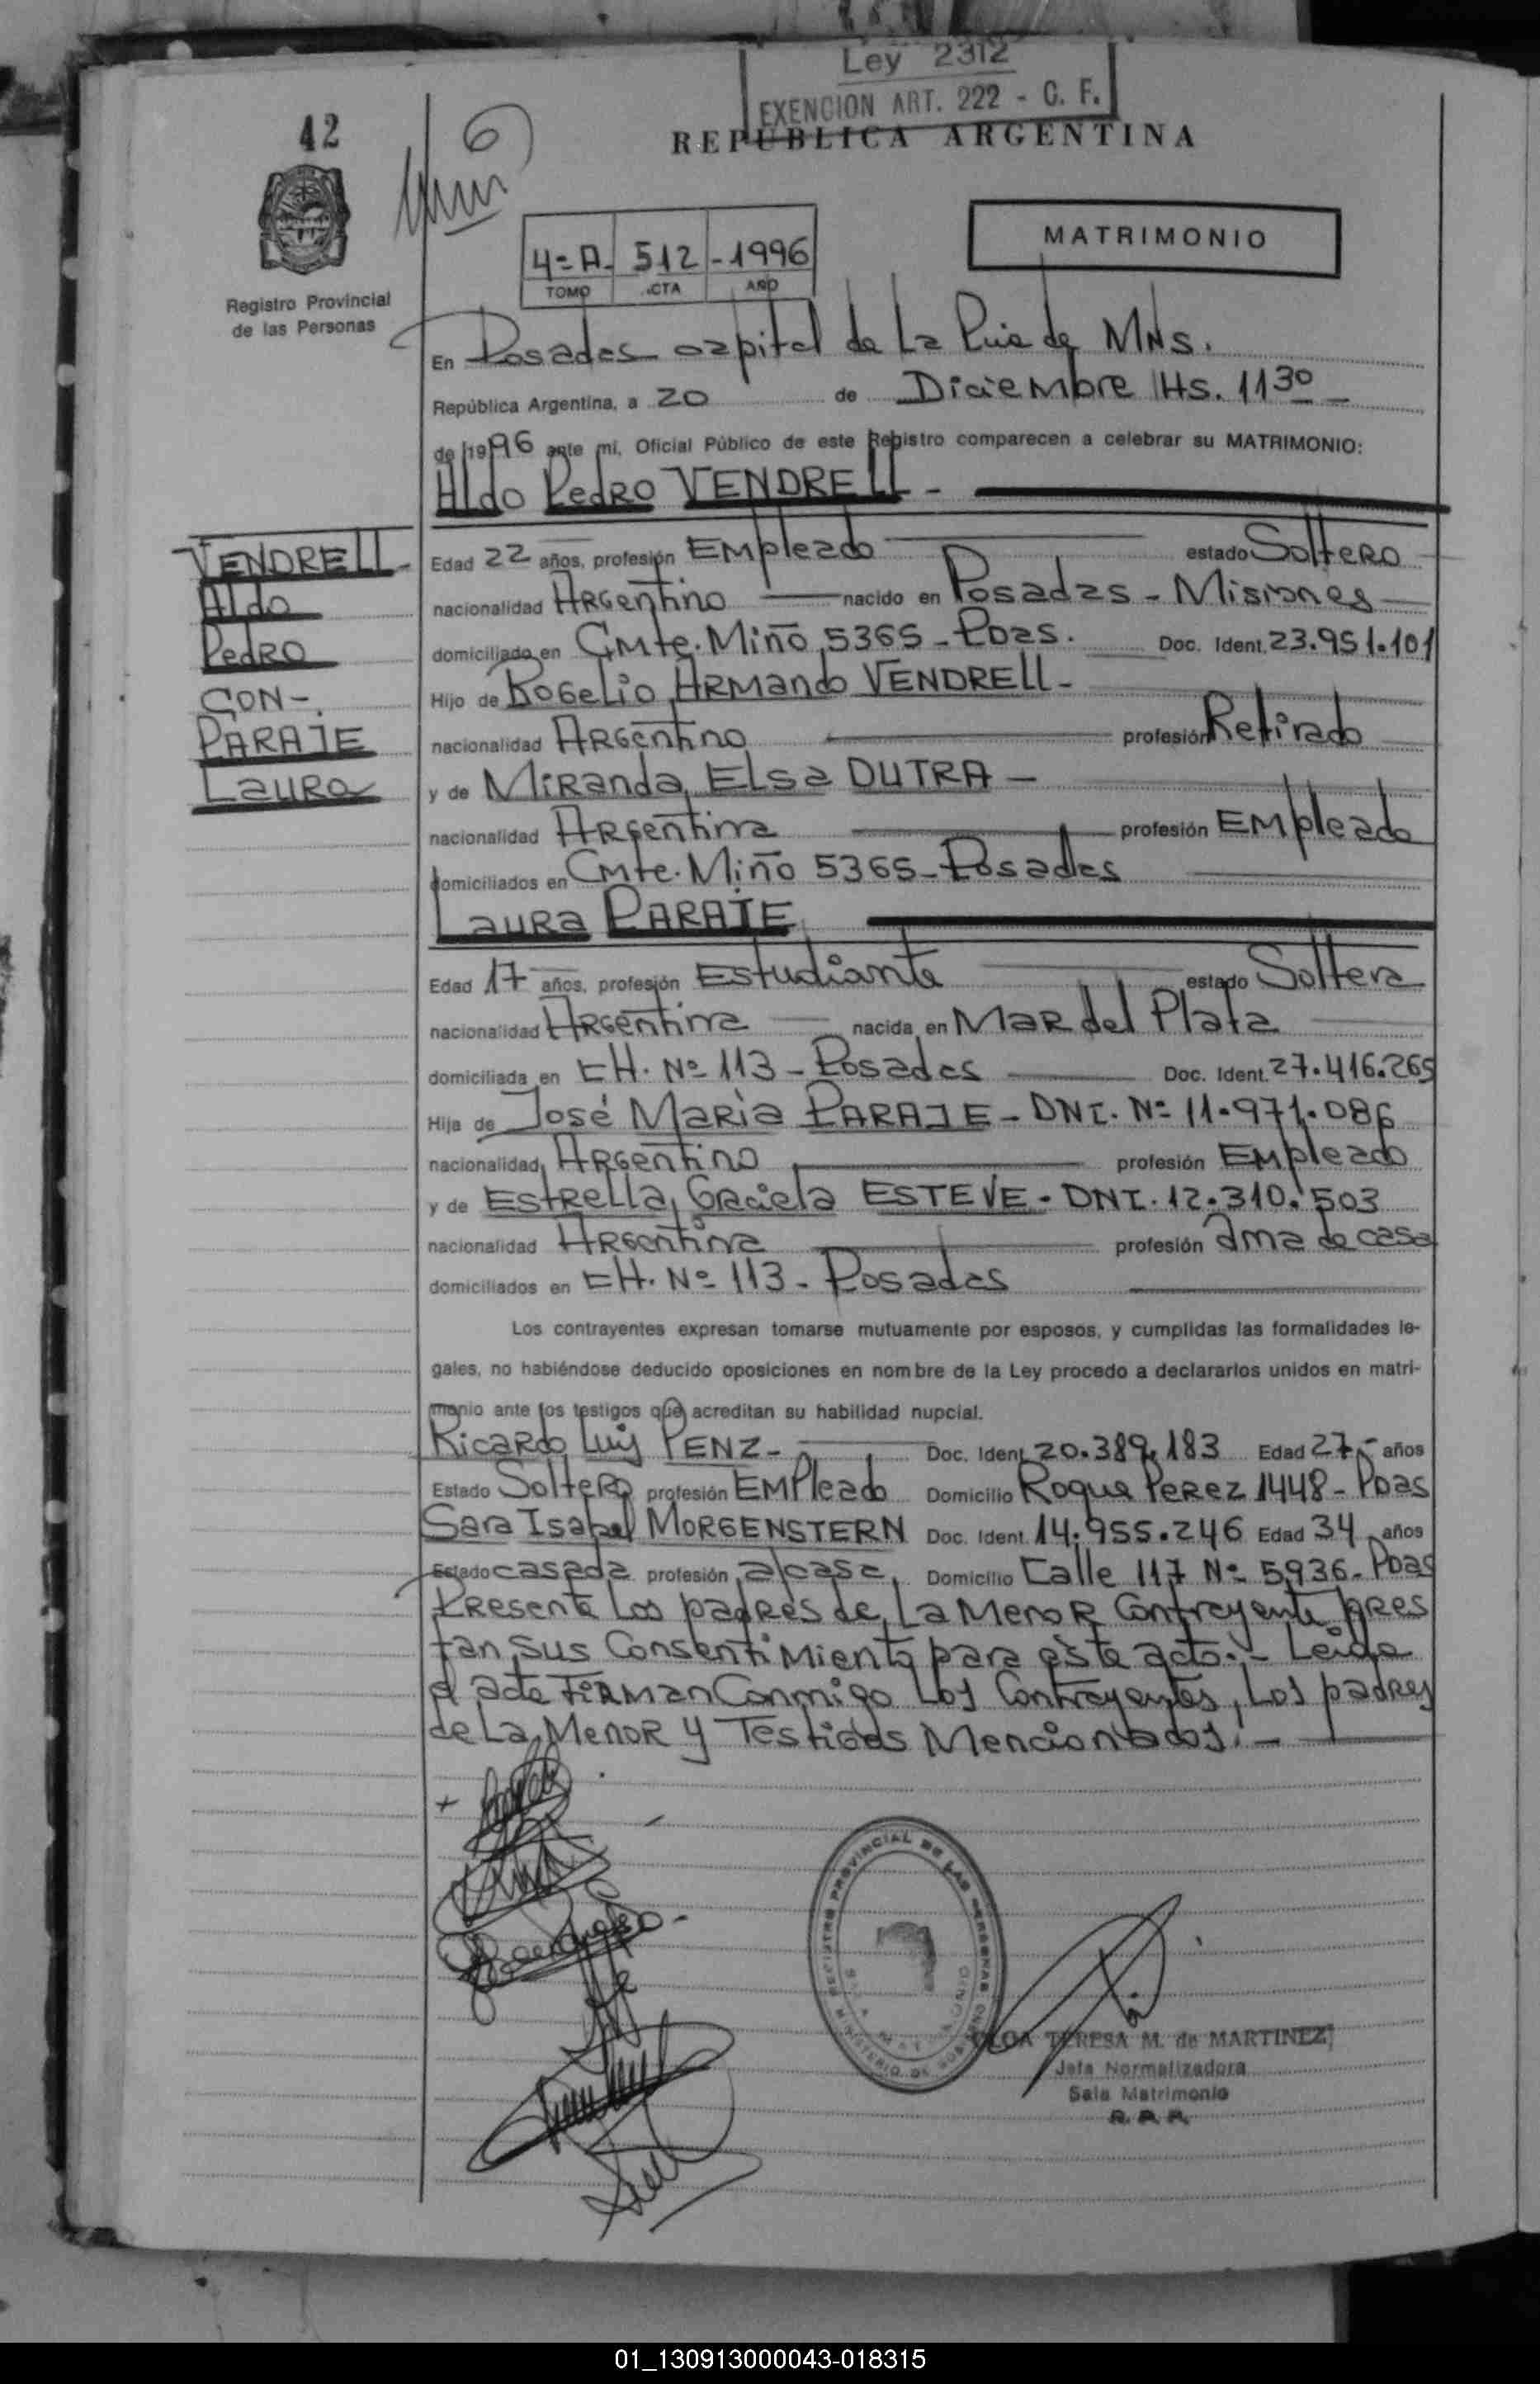 Ley 2312
EXENCION ART. 222 - C. F.
REPUBLICA ARGENTINA
42
6
MATRIMONIO
4º A. 512 - 1996
TOMO ACTA AÑO
Registro Provincial
de las Personas
En Posadas capital de La Pcia de MNS.
República Argentina, a 20 de Diciembre Hs. 11 30
de 1996 ante mi, Oficial Público de este Registro comparecen a celebrar su MATRIMONIO:
Aldo Pedro VENDRELL -
VENDRELL -
Aldo
Pedro
CON -
PARAJE
Laura
Edad 22 años, profesión Empleado estado Soltero
nacionalidad Argentino nacido en Posadas - Misiones
domiciliado en Cmte. Miño 5365 - Pdas. Doc. Ident. 23.951.101
Hijo de Rogelio Armando VENDRELL -
nacionalidad Argentino profesión Retirado
y de Miranda Elsa DUTRA -
nacionalidad Argentina profesión Empleada
domiciliados en Cmte. Miño 5365 - Posadas
Laura PARAJE
Edad 17 años, profesión Estudiante estado Soltera
nacionalidad Argentina nacida en Mar del Plata
domiciliada en CH. Nº 113 - Posadas Doc. Ident. 27.416.265
Hija de José María PARAJE - DNI. Nº 11.971.086
nacionalidad Argentino profesión Empleado
y de Estrella Graciela ESTEVE - DNI. 12.310.503
nacionalidad Argentina profesión ama de casa
domiciliados en CH. Nº 113 - Posadas
Los contrayentes expresan tomarse mutuamente por esposos, y cumplidas las formalidades le-
gales, no habiéndose deducido oposiciones en nombre de la Ley procedo a declararlos unidos en matri-
monio ante los testigos que acreditan su habilidad nupcial.
Ricardo Luis PENZ - Doc. Ident. 20.389.183 Edad 27 - años
Estado Soltero profesión Empleado Domicilio Roque Perez 1448 - Pdas
Sara Isabel MORGENSTERN Doc. Ident. 14.955.246 Edad 34 años
Estado casada profesión a/casa Domicilio Calle 117 Nº 5936 - Pdas
Presente los padres de la menor contrayente pres
tan sus consentimiento para éste acto. - Leida
el acta firman conmigo los contrayentes, los padres
de la menor y testigos mencionados. -
REGISTRO PROVINCIAL DE LAS PERSONAS
MINISTERIO DE GOBIERNO
OLGA TERESA M. de MARTINEZ
Jefa Normalizadora
Sala Matrimonio
R. P. P.
01_130913000043-018315